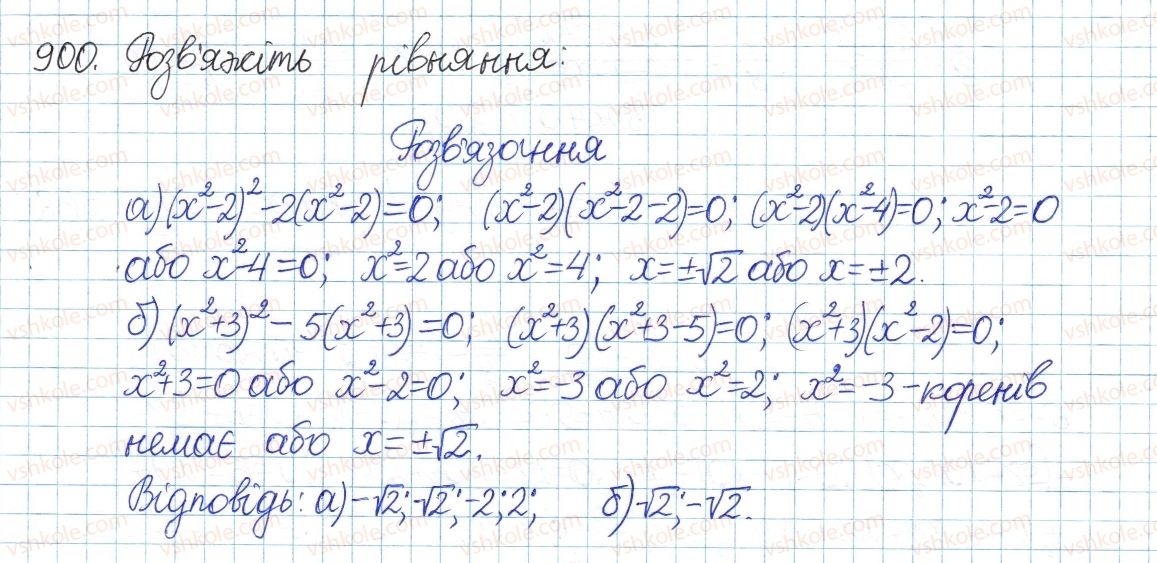 900. Розв'яжіть рівняння:
Розв'язання
а) (x²-2)²-2(x²-2)=0; (x²-2)(x²-2-2)=0; (x²-2)(x²-4)=0; x²-2=0
або x²-4=0; x²=2 або x²=4; x=±√2 або x=±2.
б) (x²+3)²-5(x²+3)=0; (x²+3)(x²+3-5)=0; (x²+3)(x²-2)=0;
x²+3=0 або x²-2=0; x²=-3 або x²=2; x²=-3-коренів
немає або x=±√2.
Відповідь: а)-√2;-√2;-2;2; б)√2;-√2.